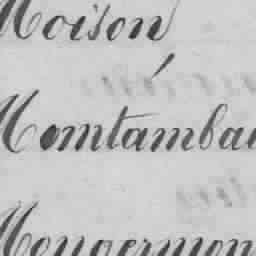 Moison
Montambau
Mongermon